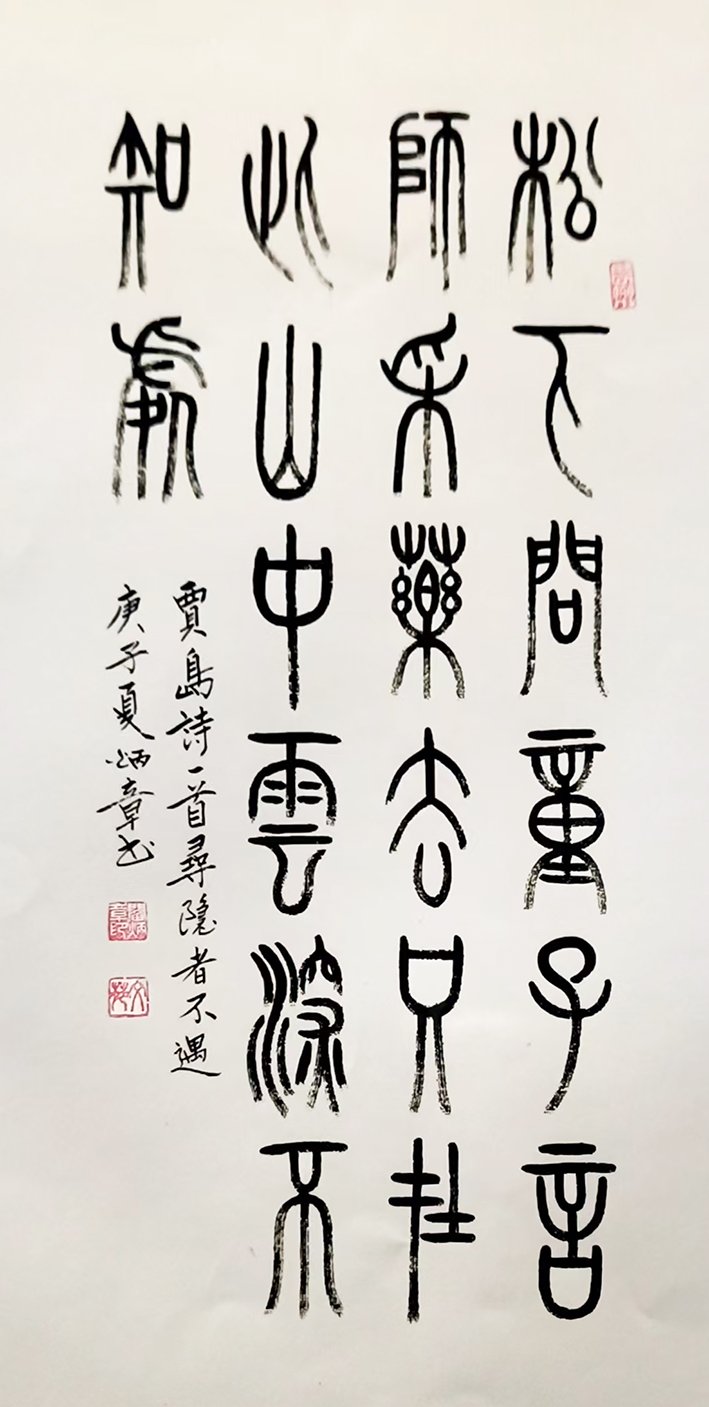 松下問童子言
師采藥去只在
此山中雲深不
知處
賈島詩一首尋隱者不遇
庚子夏炳章书